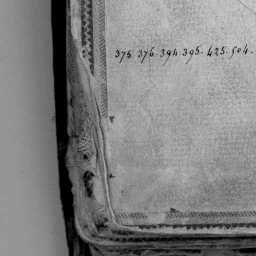 375. 376. 394. 395. 425. 504.